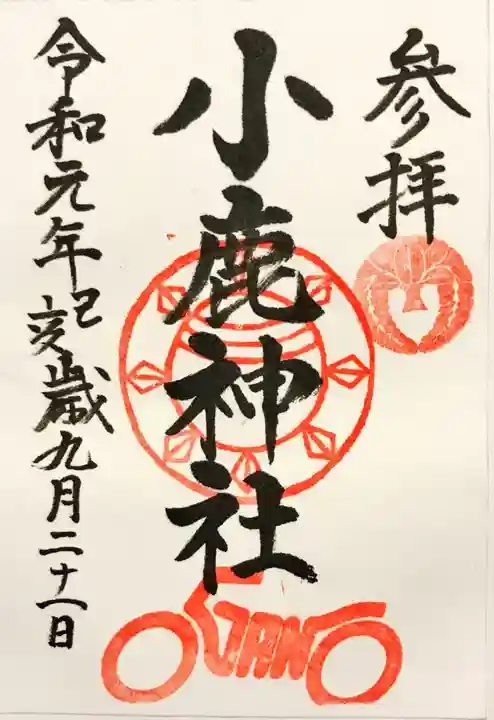 参拝
小鹿神社
令和元年己亥歳九月二十一日
OGANO